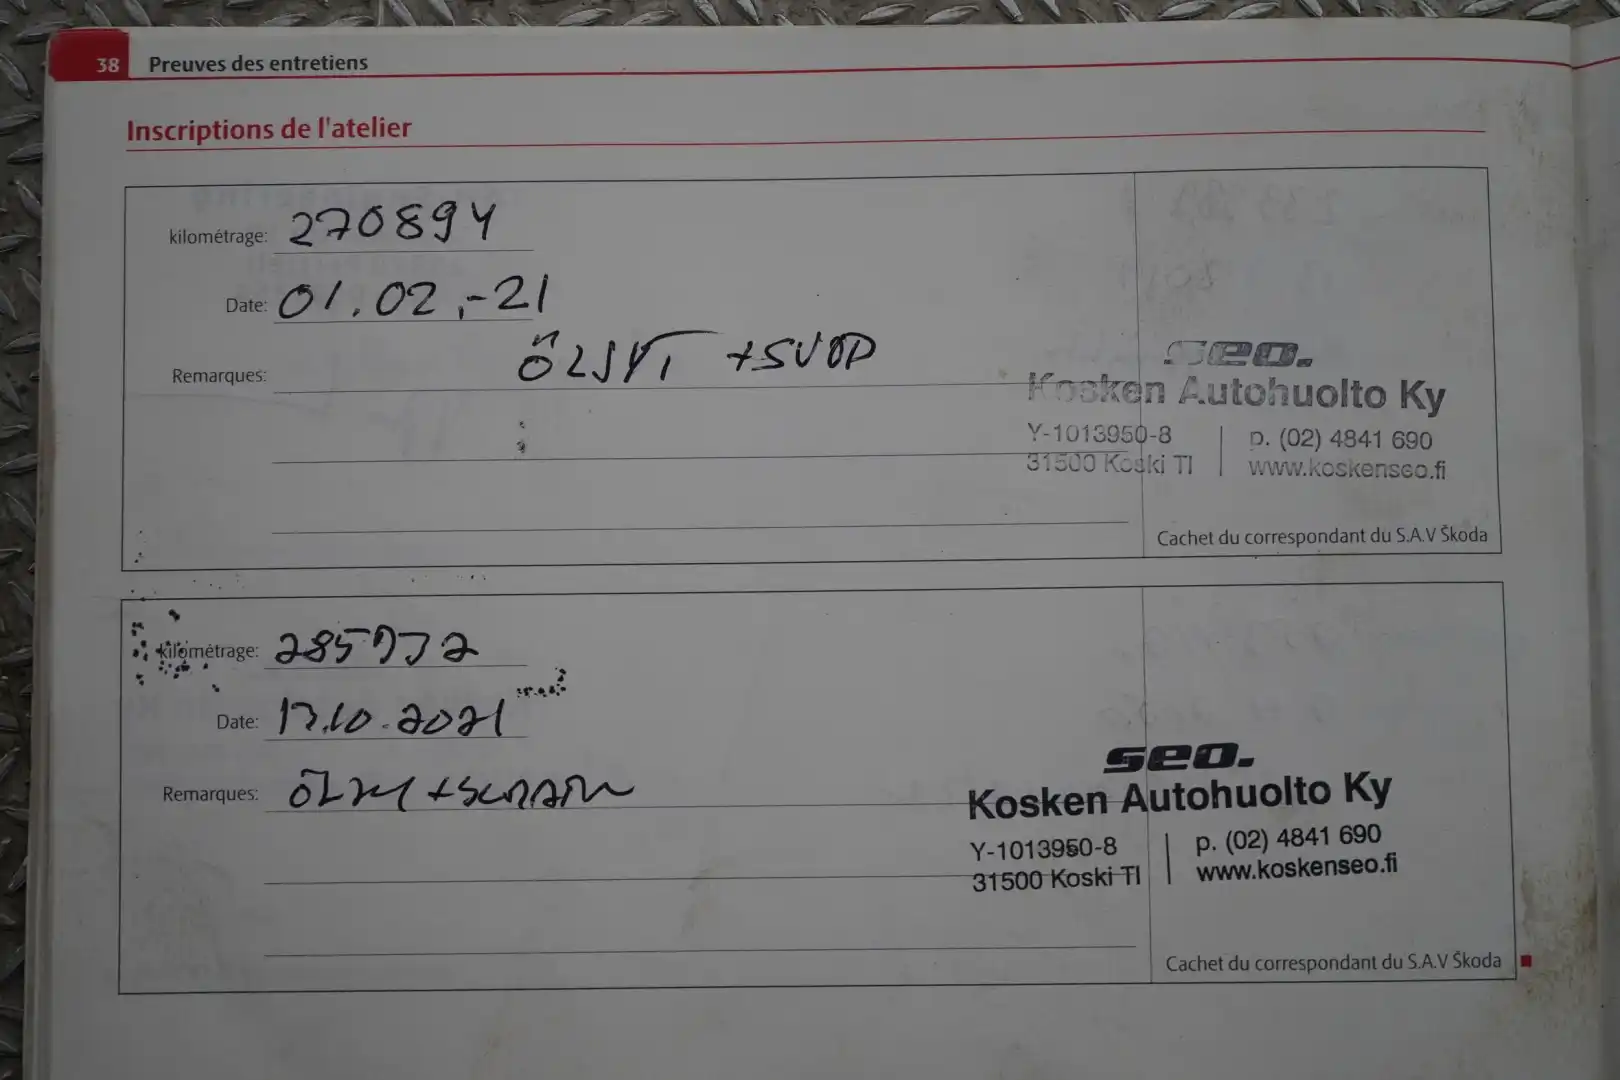 38 Preuves des entretiens
Inscriptions de l'atelier
kilométrage: 270894
Date: 01.02.-21
Remarques: ÖLJYT +SUOD
seo.
Kosken Autohuolto Ky
Y-1013950-8 p. (02) 4841 690
31500 Koski Tl www.koskenseo.fi
Cachet du correspondant du S.A.V Škoda
kilométrage:
Date: 13.10.2021
Remarques:
seo.
Kosken Autohuolto Ky
Y-1013950-8 p. (02) 4841 690
31500 Koski Tl www.koskenseo.fi
Cachet du correspondant du S.A.V Škoda